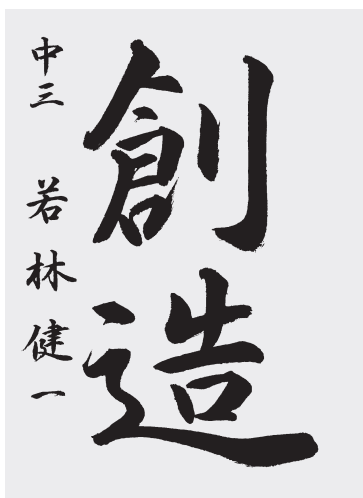 創造
中三 若林健一